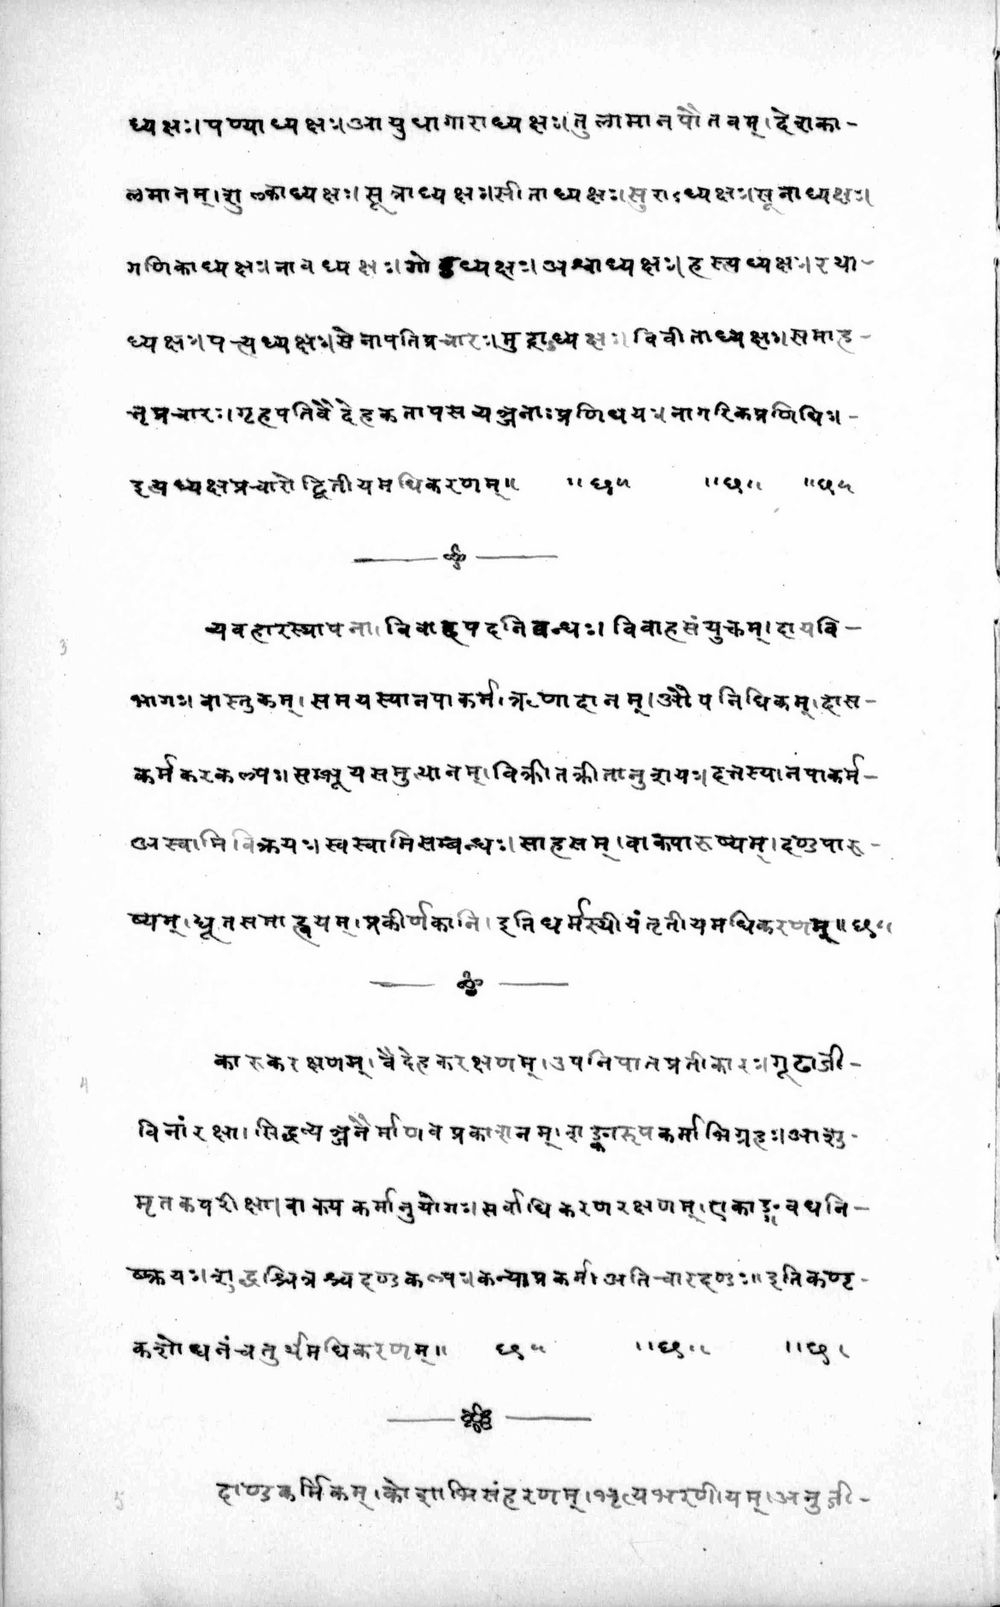 ध्यक्षः। पण्याध्यक्षः। आयुधागाराध्यक्षः। तुलामानपौतवम्। देशका-
लमानम्। शुल्काध्यक्षः। सूत्राध्यक्षः। सीताध्यक्षः। सुराऽध्यक्षः। सूनाध्यक्षः।
गणिकाध्यक्षः। नावध्यक्षः। गोऽध्यक्षः। अश्वाध्यक्षः। हस्त्यध्यक्षः। रथा-
ध्यक्षः। पत्त्यध्यक्षः। सेनापतिप्रचारः। मुद्राध्यक्षः। विवीताध्यक्षः। समाह-
र्तृप्रचारः। गृहपतिवैदेहकतापसव्यञ्जनाः प्रणिधयः। नागरिकप्रणिधिः। -
इत्यध्यक्षप्रचारो द्वितीयमधिकरणम्॥ ॥छ॥ ॥छ॥ ॥छ॥
3
व्यवहारस्थापना। विवादपदनिबन्धः। विवाहसंयुक्तम्। दायवि-
भागः। वास्तुकम्। समयस्यानपाकर्म। ऋणादानम्। औपनिधिकम्। दास-
कर्मकरकल्पः। सम्भूयसमुत्थानम्। विक्रीतक्रीतानुशयः। दत्तस्यानपाकर्म-
अस्वामिविक्रयः। स्वस्वामिसम्बन्धः। साहसम्। वाक्पारुष्यम्। दण्डपारु-
ष्यम्। द्यूतसमाह्वयम्। प्रकीर्णकानि। इति धर्मस्थीयं तृतीयमधिकरणम्॥छ॥
4
कारुकरक्षणम्। वैदेहकरक्षणम्। उपनिपातप्रतीकारः। गूढाजी-
विनां रक्षा। सिद्धव्यञ्जनैर्माणवप्रकाशनम्। शङ्कारूपकर्माभिग्रहः। आशु-
मृतकपरीक्षा। वाक्यकर्मानुयोगः। सर्वाधिकरणरक्षणम्। एकाङ्गवधनि-
ष्क्रयः। शुद्धश्चित्रश्च दण्डकल्पः। कन्याप्रकर्म। अतिचारदण्डः॥ इति कण्ट-
कशोधनं चतुर्थमधिकरणम्॥ छ॥ ॥छ॥ ॥छ।
5
दाण्डकर्मिकम्। कोशाभिसंहरणम्। भृत्यभरणीयम्। अनुजी-